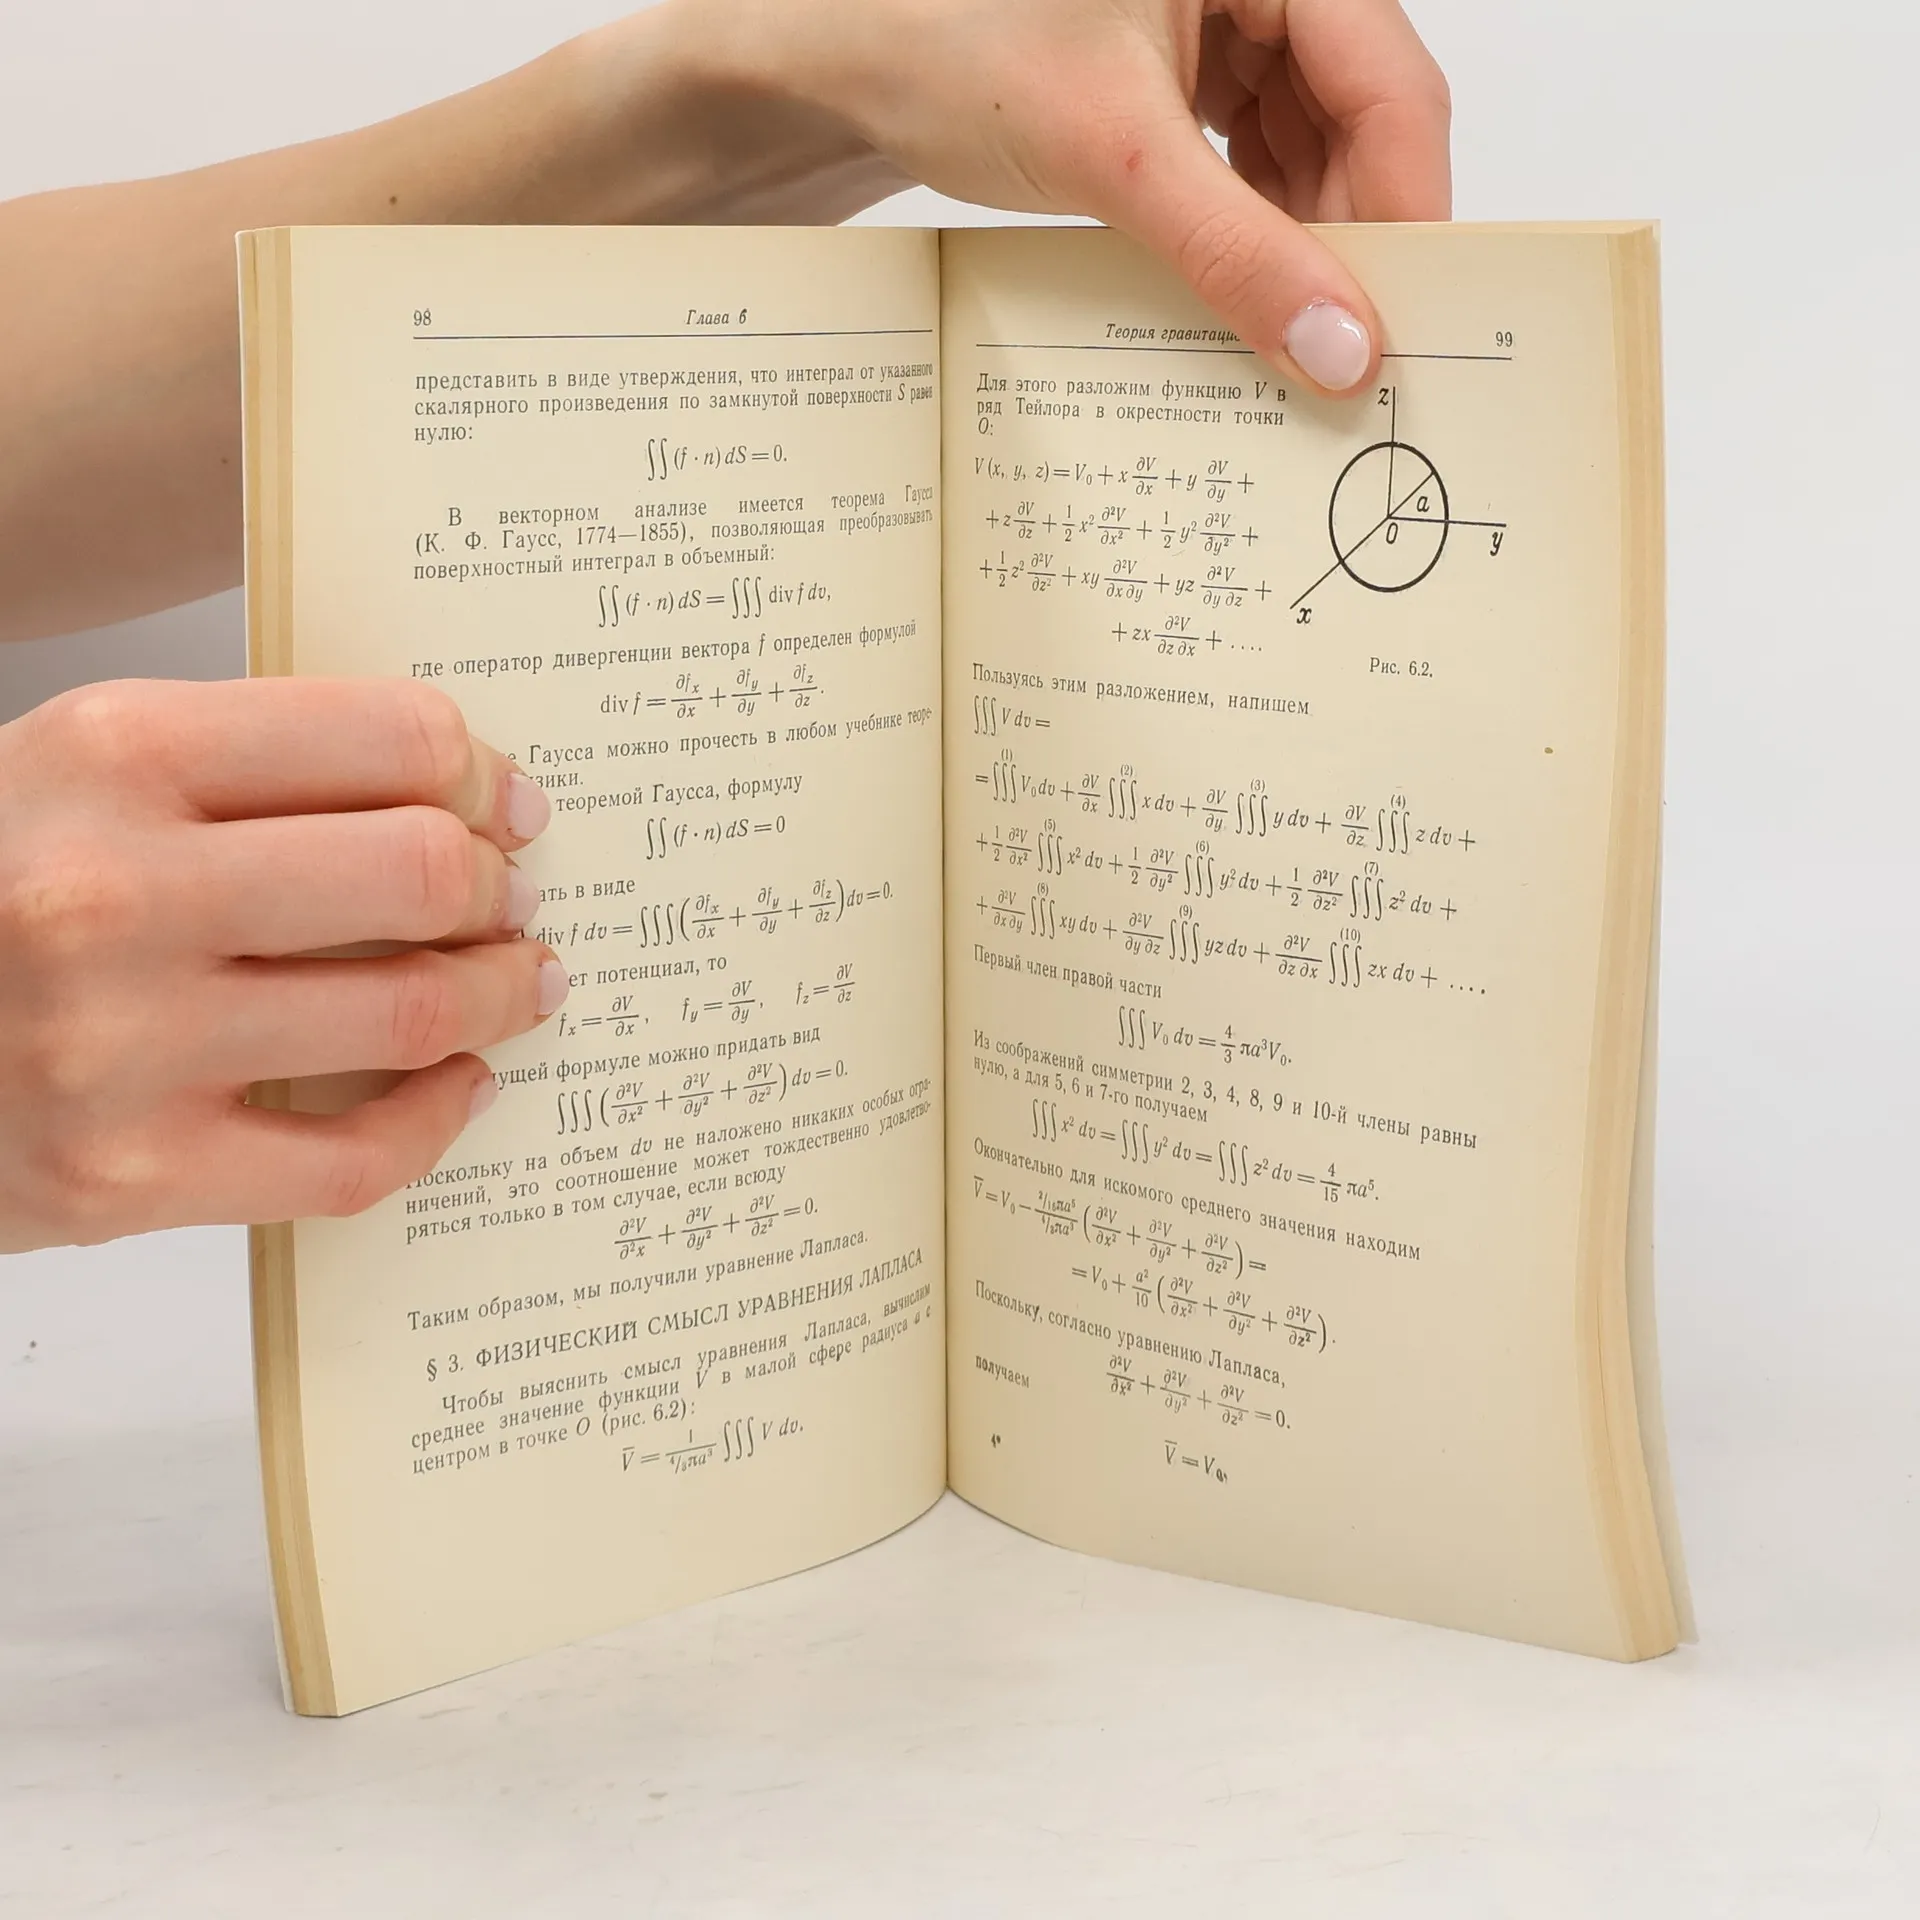 98 Глава 6
представить в виде утверждения, что интеграл от указанного
скалярного произведения по замкнутой поверхности S равен
нулю:
∬(f · n) dS = 0.
В векторном анализе имеется теорема Гаусса
(К. Ф. Гаусс, 1774—1855), позволяющая преобразовывать
поверхностный интеграл в объемный:
∬(f · n) dS = ∭ div f dv,
где оператор дивергенции вектора f определен формулой
div f = ∂fx/∂x + ∂fy/∂y + ∂fz/∂z.
Гаусса можно прочесть в любом учебнике теоре-
теоремой Гаусса, формулу
∬(f · n) dS = 0
в виде
div f dv = ∭(∂fx/∂x + ∂fy/∂y + ∂fz/∂z) dv = 0.
потенциал, то
fx = ∂V/∂x, fy = ∂V/∂y, fz = ∂V/∂z
формуле можно придать вид
∭(∂²V/∂x² + ∂²V/∂y² + ∂²V/∂z²) dv = 0.
Поскольку на объем dv не наложено никаких особых огра-
ничений, это соотношение может тождественно удовлетво-
ряться только в том случае, если всюду
∂²V/∂²x + ∂²V/∂y² + ∂²V/∂z² = 0.
Таким образом, мы получили уравнение Лапласа.
§ 3. ФИЗИЧЕСКИЙ СМЫСЛ УРАВНЕНИЯ ЛАПЛАСА
Чтобы выяснить смысл уравнения Лапласа, вычислим
среднее значение функции V в малой сфере радиуса a с
центром в точке O (рис. 6.2):
V̅ = 1/(⁴/₃πa³) ∭ V dv.
Теория 99
Для этого разложим функцию V в
ряд Тейлора в окрестности точки
O:
V (x, y, z) = V₀ + x ∂V/∂x + y ∂V/∂y +
+ z ∂V/∂z + 1/2 x² ∂²V/∂x² + 1/2 y² ∂²V/∂y² +
+ 1/2 z² ∂²V/∂z² + xy ∂²V/∂x ∂y + yz ∂²V/∂y ∂z +
+ zx ∂²V/∂z ∂x + ....
z
a
O
y
x
Рис. 6.2.
Пользуясь этим разложением, напишем
∭ V dv =
(1) (2) (3) (4)
= ∭ V₀ dv + ∂V/∂x ∭ x dv + ∂V/∂y ∭ y dv + ∂V/∂z ∭ z dv +
(5) (6) (7)
+ 1/2 ∂²V/∂x² ∭ x² dv + 1/2 ∂²V/∂y² ∭ y² dv + 1/2 ∂²V/∂z² ∭ z² dv +
(8) (9) (10)
+ ∂²V/∂x ∂y ∭ xy dv + ∂²V/∂y ∂z ∭ yz dv + ∂²V/∂z ∂x ∭ zx dv + ....
Первый член правой части
∭ V₀ dv = 4/3 πa³V₀.
Из соображений симметрии 2, 3, 4, 8, 9 и 10-й члены равны
нулю, а для 5, 6 и 7-го получаем
∭ x² dv = ∭ y² dv = ∭ z² dv = 4/15 πa⁵.
Окончательно для искомого среднего значения находим
V̅ = V₀ − (²/₁₅πa⁵)/(⁴/₃πa³) (∂²V/∂x² + ∂²V/∂y² + ∂²V/∂z²) =
= V₀ + a²/10 (∂²V/∂x² + ∂²V/∂y² + ∂²V/∂z²).
Поскольку, согласно уравнению Лапласа,
∂²V/∂x² + ∂²V/∂y² + ∂²V/∂z² = 0.
получаем
V̅ = V₀,
4*